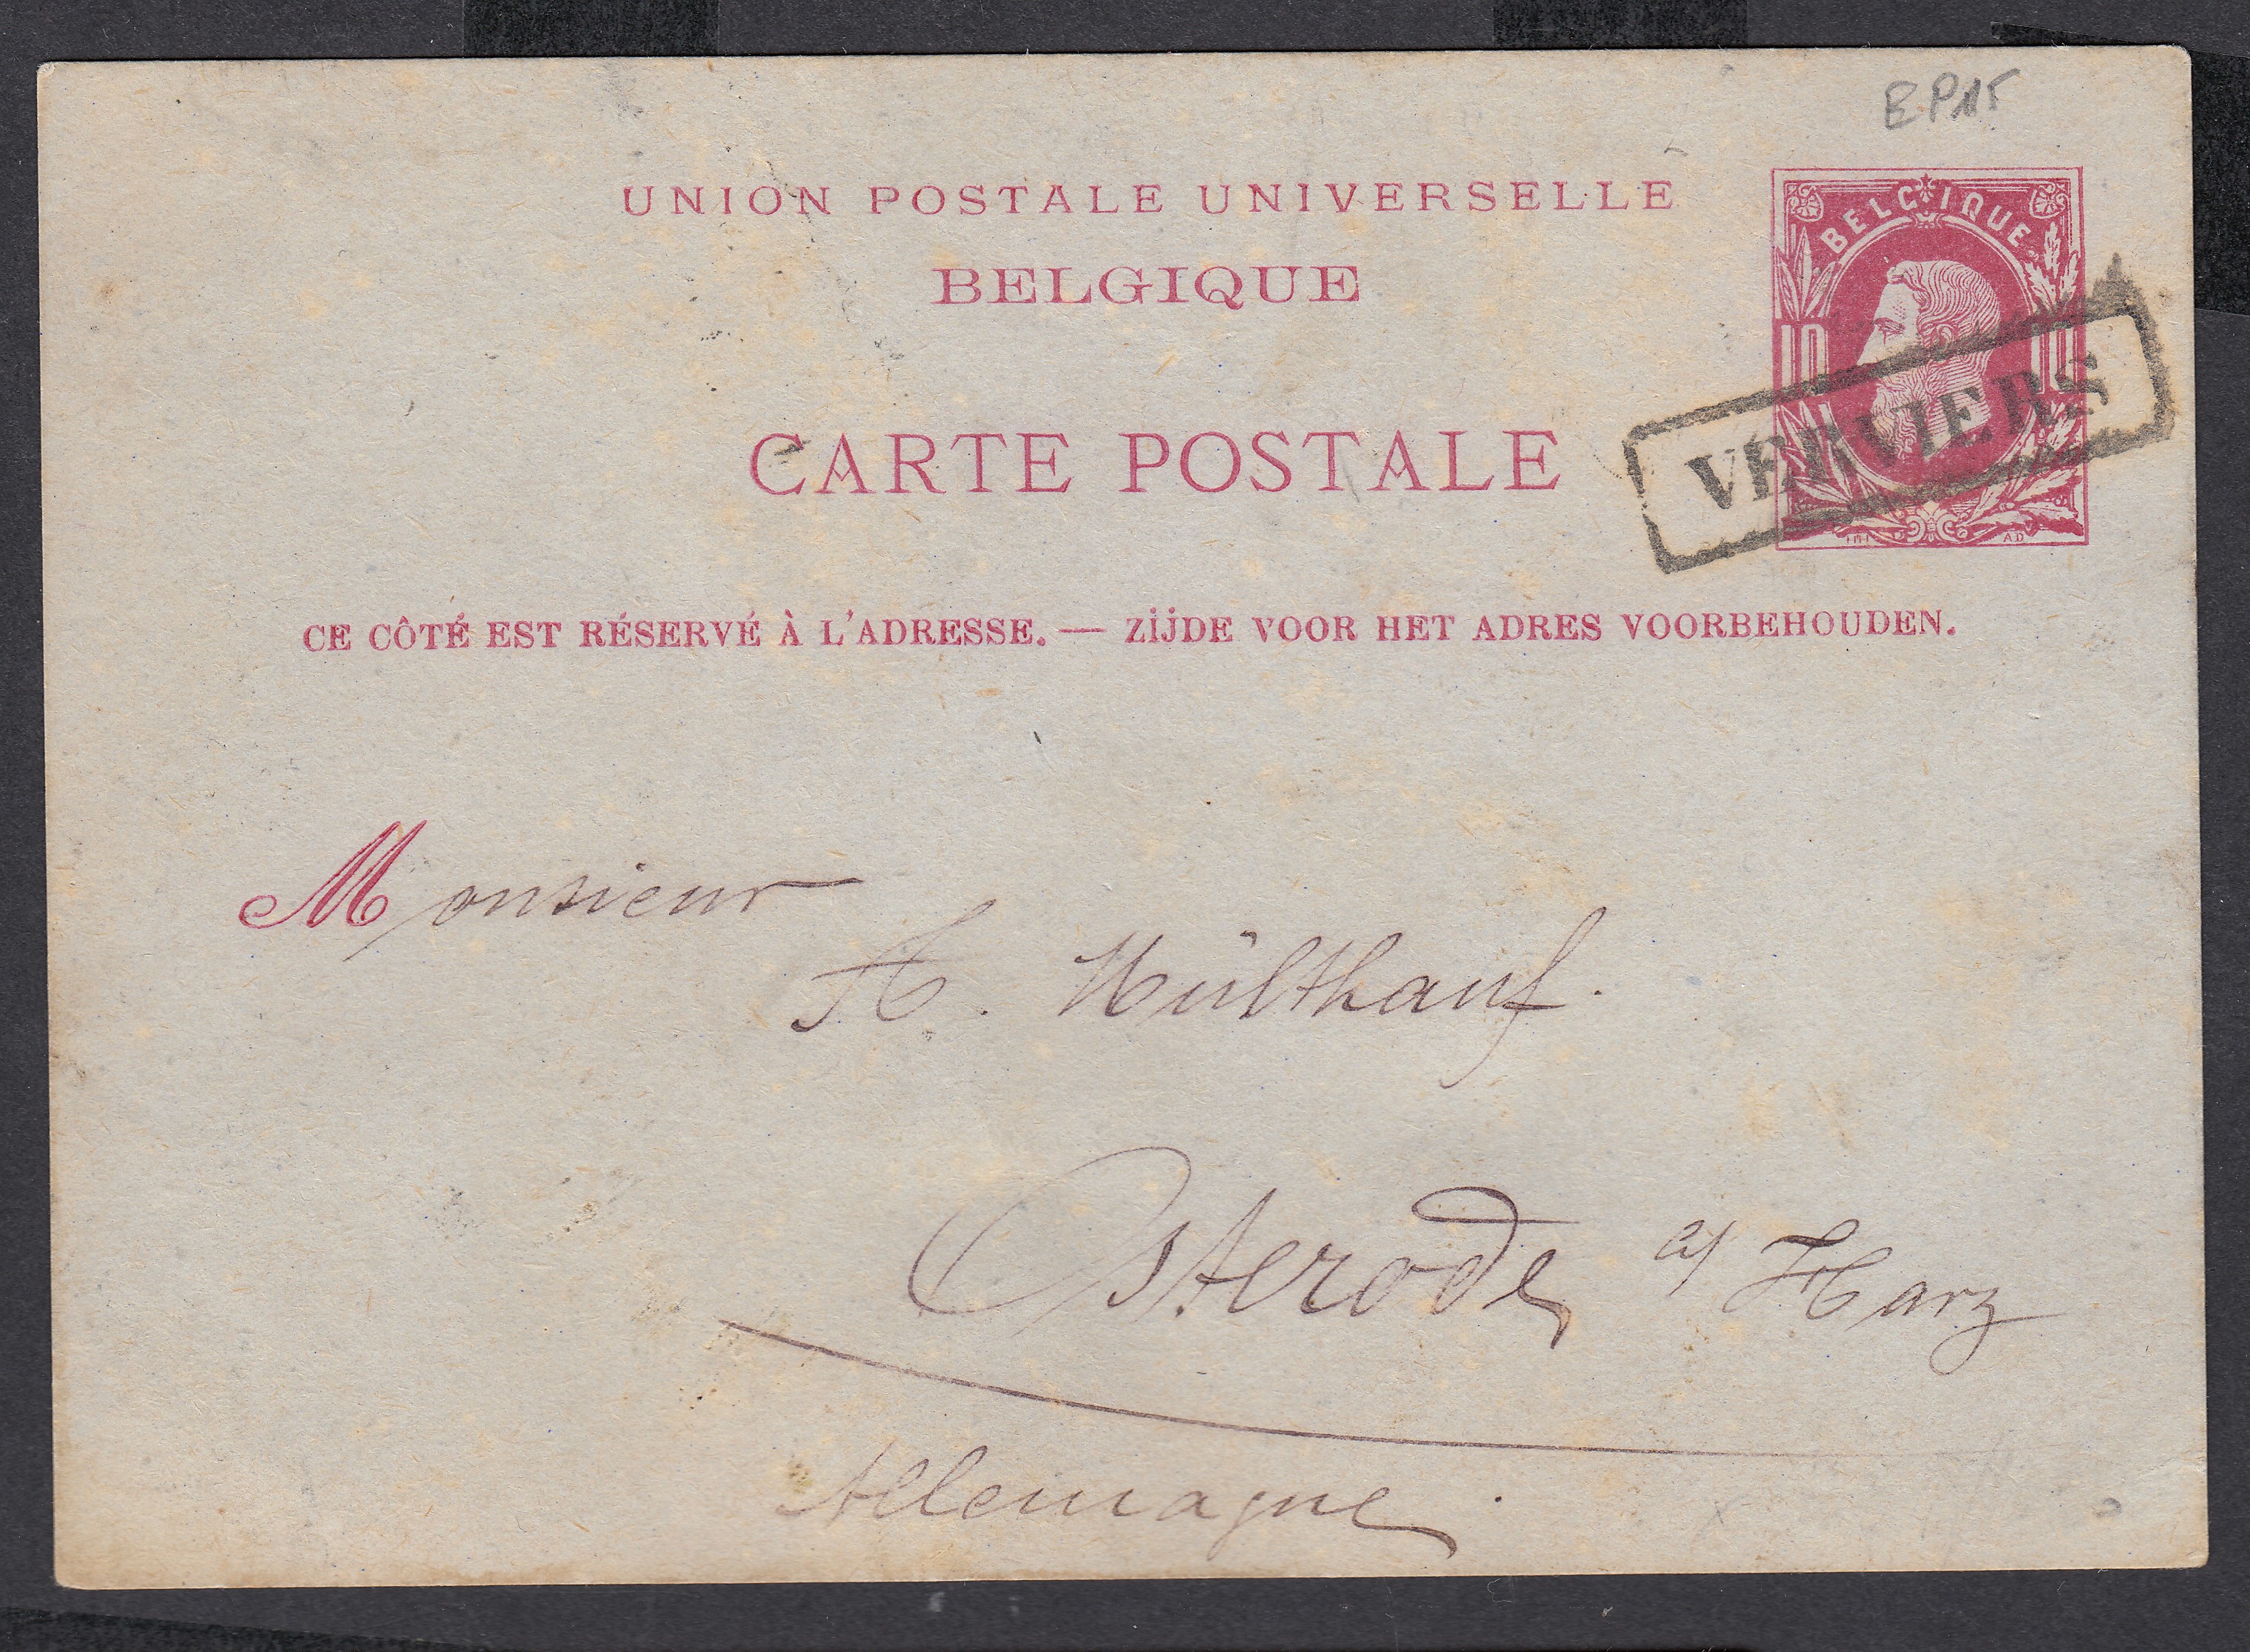 EP15
UNION POSTALE UNIVERSELLE
BELGIQUE
BELGIQUE
10
VERVIERS
CARTE POSTALE
CE CÔTÉ EST RÉSERVÉ À L'ADRESSE. — ZIJDE VOOR HET ADRES VOORBEHOUDEN.
Monsieur
A. Hülthauf.
Osterode a/ Harz
Allemagne.